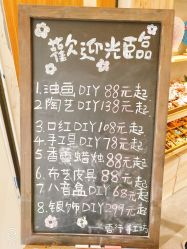 歡迎光臨
1.油画DIY 88元起
2.陶艺DIY138元起
3.口红DIY108元起
4.手工具DIY78元起
5.香薰蜡烛88元起
6.布艺皮具88元起
7.八音盒DIY68元起
8.银饰DIY299元起
手工坊